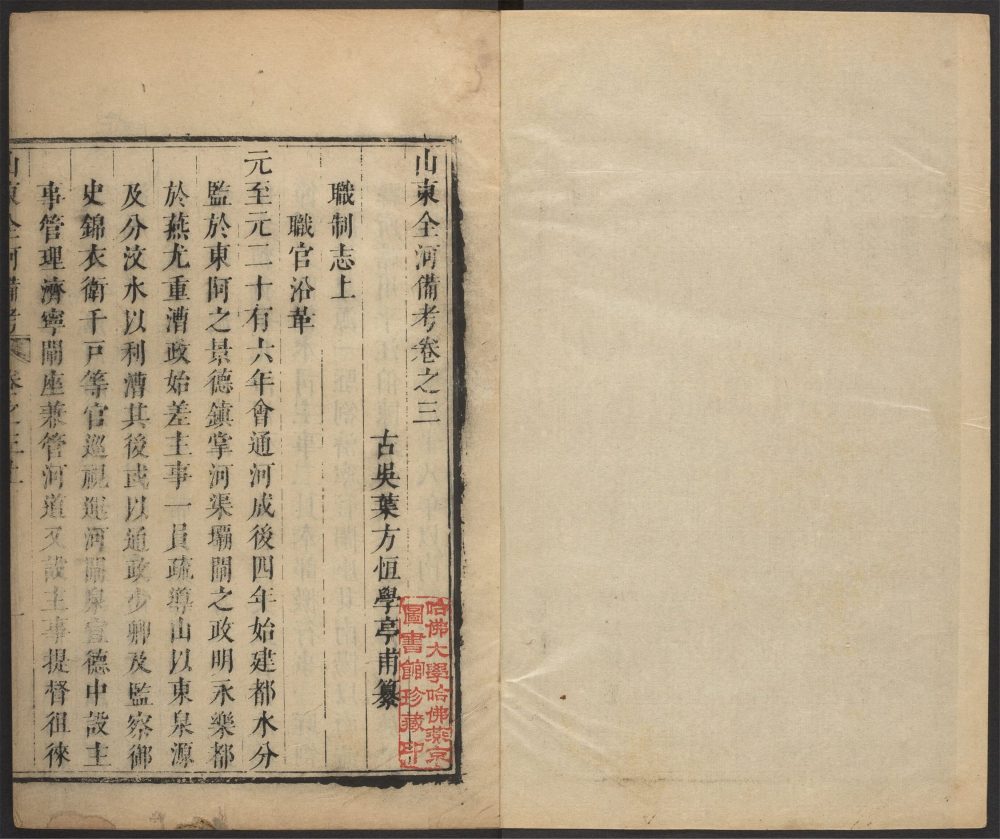 山東全河備考卷之三
古吳葉方恒學亭甫纂
職制志上
職官沿革
元至元二十有六年會通河成後四年始建都水分
監於東阿之景德鎮掌河渠壩閘之政明永樂都
於燕尤重漕政始差主事一員疏導山以東泉源
及分汶水以利漕其後或以通政少卿及監察御
史錦衣衛千戶等官巡視運河閘泉宣德中設主
事管理濟寧閘座兼管河道又設主事提督徂徠
山東全河備考
卷之三上
一
哈佛大學哈佛燕京
圖書館珍藏印